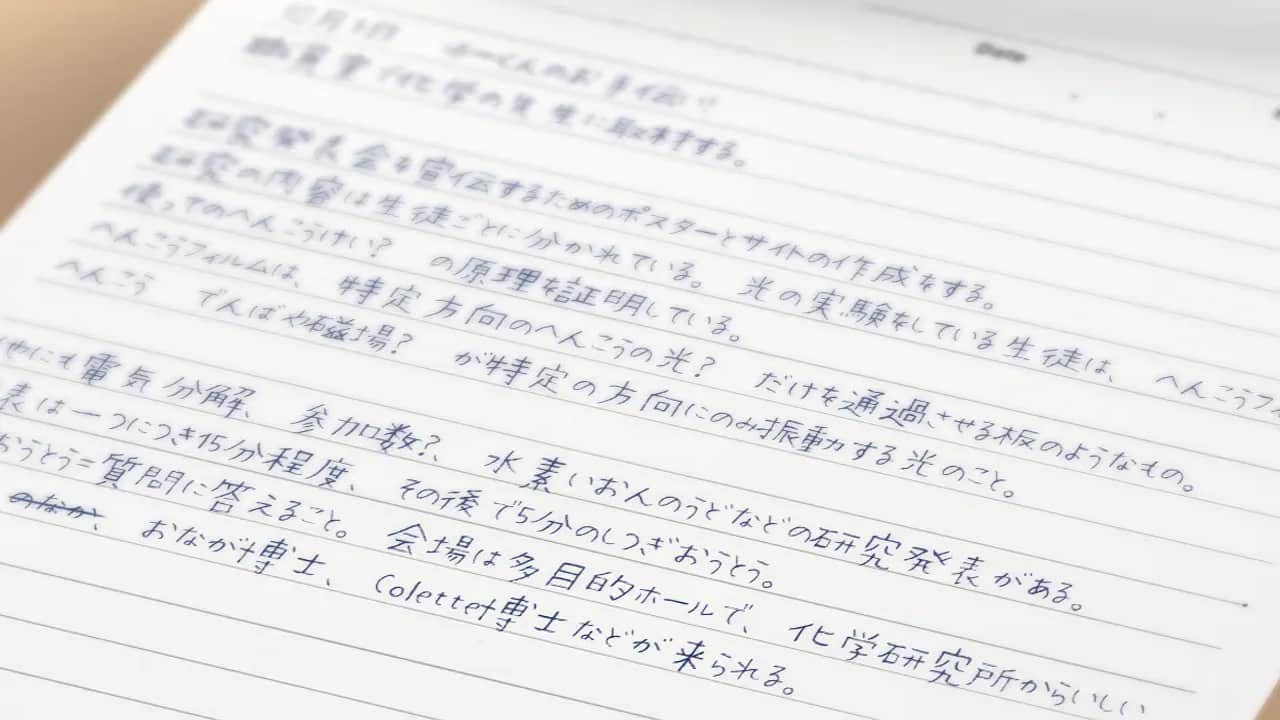 Date
月1日 みーくんのお手伝い
職員室で化学の先生に取材する。
研究発表会を宣伝するためのポスターとサイトの作成をする。
研究の内容は生徒ごとに分かれている。 光の実験をしている生徒は、 へんこうフィ
使ってのへんこうけい? の原理を証明している。
へんこうフィルムは、 特定方向のへんこうの光? だけを通過させる板のようなもの。
へんこう でんばや磁場? が特定の方向にのみ振動する光のこと。
他にも電気分解、 参加数?、 水素いおんのうどなどの研究発表がある。
表は一つにつき15分程度、 その後で5分のしつぎおうとう。
おうとう=質問に答えること。 会場は多目的ホールで、 化学研究所からいしい
のなか、 おなが博士、 Colette博士などが来られる。